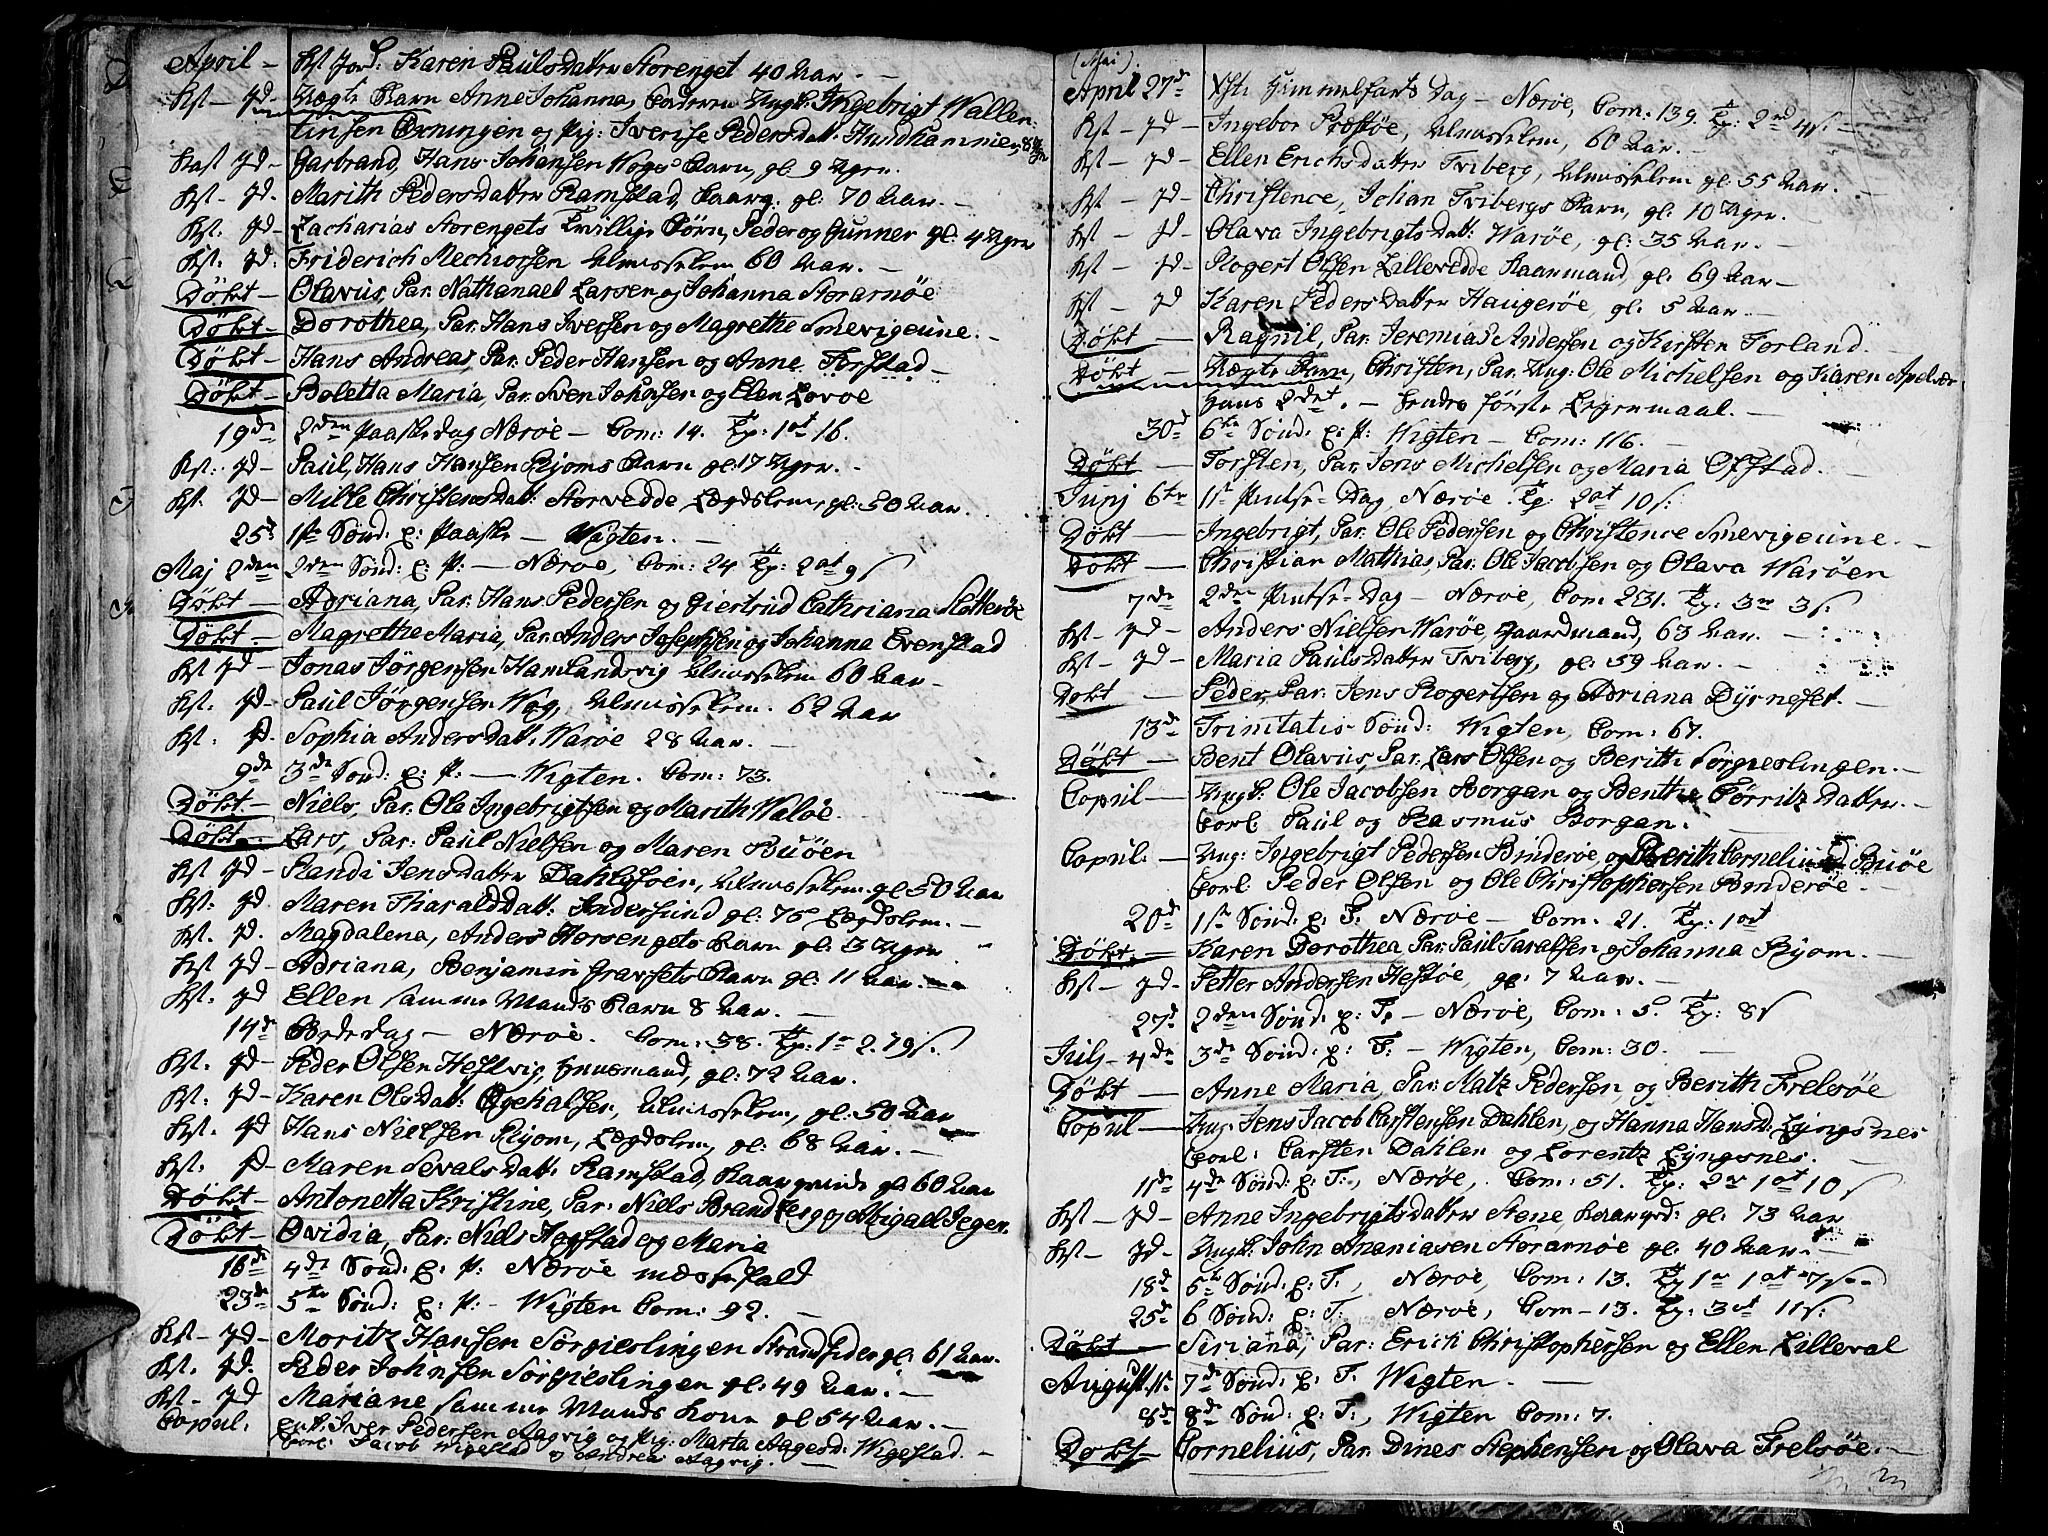 April – Kst Jord: Karen Paulsdatter Storenget 40 Aar. –
Kst – Jd – Uægte Barn Anne Johanna, Forældre Ungk: Ingebrigt Wallen
tinsen Oxningen og Pig: Iverise Pedersdatt: Hundhammer, 8 Ugr
Kast Jd – Garbrand, Hans Johansen Wogs Barn, gl. 9 Uger.
Kst – Jd. Marith Pedersdatter Ramstad, Kaarq: gl: 70 Aar. –
Kst. Jd – Zacharias Storengets Tvillige Børn, Peder og Gunner gl: 4 Uger
Kst. Jd. Friderich Mechiorsen Almisselem 60 Aar. –
Døbt – Olavus, Par: Nathanael Larsen og Johanna Storarnøe
Døbt – Dorothea, Par: Hans Iversen og Magrethe Smevigeune. –
Døbt – Hans Andreas, Par: Peder Hansen og Anne Forstad –
Døbt – Boletta Maria, Par: Sven Johnsen og Ellen Lovøe
19de 2den Paaskedag Nærøe – Com: 14. Tp: 1 ort 16.
Kst: Jd – Paul, Hans Hansen Ryoms Barn gl: 17 Uger. –
Kst. Jd – Mille Christensdatt: Storvedde Lægdslem, gl: 50 Aar.
25de 1ste Sønd: p: Paaske – Wigten. –
Maj 2den 2den Sønd: p: P: – Nærøe, Com: 24 Tp: 2 ort 9 s
Døbt – Adriana, Par: Hans Pedersen og Giertrud Cathriana Slotterøe
Døbt – Magrethe Maria, Par: Anders Josephsen og Johanna Evenstad
Kst Jd – Jonas Jørgensen Hamlandsvig Almisselem 60 Aar –
Kst. Jd – Paul Jørgensen Wog, Almisselem. 62 Aar
Kst. Jd. Sophia Andersdatt: Warøe 28 Aar. –
9de 3de Sønd: p: P: – Wigten. Com: 73.
Døbt – Niels, Par: Ole Ingebrigtsen og Marith Waløe.
Døbt – Lars, Par: Paul Nielsen og Maren Buøen
Kst Jd – Randi Jensdatter Dahlssøen, Almisselem gl: 50 Aar
Kst: Jd. Maren Tharaldsdatt: Indersund gl: 76 Lægdslem. –
Kst. Jd. Magdalena, Anders Horsengets Barn gl: 3 Uger
Kst Jd – Adriana, Benjamin Gravsets Barn gl: 11 Aar.
Kst. Jd Ellen samme Mands Barn 8 Aar. –
14de Bededag – Nærøe. Com: 38. Tp: 1 r 2. 19 s. –
Kst. Jd – Peder Olsen Hestvig, Huusmand, gl: 72 Aar.
Kst. Jd – Karen Olsdatt: Ogehalsen, Almisselem, gl: 50 Aar
Kst. Jd Hans Nielsen Ryom, Lægdslem, gl: 68 Aar. –
Kst. Jd – Maren Sevalsdatt: Ramstad, Kaarqvinde gl: 60 Aar
Døbt – Antonetta Kristine, Par: Niels Brandtzeg og Abigael Jeger.
Døbt – Ovidia, Par: Niels Hopstad og Maria
16de 4de Sønd: p: P: Nærøe mæssefald
23de 5te Sønd: p: P: – Wigten Com: 92. –
Kst – Jd – Moritz Hansen Sørgieslingen Strandsider gl: 61 Aar.
Kst. Jd. Peder Johnsen Sørgieslingen gl: 49 Aar. –
Kst – Jd Mariane samme Mands Kone gl 54 Aar. –
Copul: Enk: Iver Pedersen Aagvig og Pig: Marta Aagesd: Wigestad. –
Forl: Jacob Wigestad og Andrea Aagvig. –
(Mai).
April 27de Xsti Himmelfarts Dag – Nærøe, Com: 139. Tp: 2 rd 4 s. –
Kst – Jd – Ingebor Præstøe, Almisselem, 60 Aar. –
Kst – Jd – Ellen Erichsdatter Triberg, Almisselem gl: 55 Aar. –
Kst – Jd – Christence, Johan Tribergs Barn, gl: 10 Uger.
Kst – Jd – Olava Ingebrigtsdatt: Warøe, gl: 35 Aar. –
Kst – Jd – Rogert Olsen Lillevedde Kaarmand, gl: 69 Aar –
Kst – Jd Karen Pedersdatter Haugerøe, gl: 5 Aar. –
Døbt – Ragnil, Par: Jeremias Andersen og Kirsten Forland.
Døbt – Uægte Barn, Christen, Par: Ung: Ole Michelsen og Karen Apelvær
hans 2det. – hendes første Leiermaal. –
30de 6te Sønd: p: P: Wigten – Com: 116. –
Døbt – Torsten, Par: Jens Michelsen og Maria Ofstad. –
Junj 6te 1ste Pintse-Dag, Nærøe. Tp: 2 ort 10 s:
Døbt – Ingebrigt, Par: Ole Pedersen og Christence Smevigeune. –
Døbt – Christian Mathias, Par: Ole Jacobsen og Olava Warøen
7de 2den Pintse-Dag – Nærøe, Com 231. Tp: 3 r 3 s. –
Kst – Jd – Anders Nielsen Warøe, Gaardmand, 63 Aar. –
Kst – Jd – Maria Paulsdatter Triberg, gl: 59 Aar. –
Døbt – Peder, Par: Jens Rogertsen og Adriana Dyrneset. –
13de Trinitatis Sønd: Wigten, Com: 67.
Døbt – Bent Olavus, Par: Lars Olsen og Berith Sørgieslingen. –
Copul – Ungk: Ole Jacobsen Borgan og Benthe Tørritzdatter. –
Forl: Paul og Rasmus Borgan. –
Copul. – Ung: Ingebrigt Pedersen Binderøe og Berith Cornelius D Buøe
Forl: Peder Olsen og Ole Christophersen Binderøe. –
20de 1ste Sønd: p: T. Nærøe – Com. 21. Tp: 1 ort
Døbt – Karen Dorothea Par: Paul Taralsen og Johanna Ryom. –
Kst – Jd – Petter Andersen Hestøe, gl: 7 Aar. –
27de 2den Sønd: p: T. – Nærøe, Com: 5. Tp: 8 s
Julj – 4de 3de Sønd: p: T. – Wigten, Com: 30. –
Døbt – Anne Maria, Par: Matz Pedersen, og Berith Frelsøe
Copul – Ung: Jens Jacob Carstensen Dahlen, og Hanna Hansd: Lyngsnes
Forl: Carsten Dahlen og Lorentz Lyngsnes. –
11de 4de Sønd: p: T:, Nærøe, Com: 51. Tp: 2 r 1 ort 10 s
Kst – Jd – Anne Ingebrigtsdatter Stene, Kaarqvd: gl: 73 Aar
Kst – Jd – Ungk: John Ananiasen Storarnøe gl: 40 Aar. –
18de 5te Sønd: p: T., Nærøe, Com: 13. Tp 1 r 1 ort 7 s –
25de 6 Sønd: p: T: Nærøe, Com – 13. Tp: 3 ort 11 s:
Døbt – Siriana, Par: Erich Christophersen og Ellen Lilleval
August 1ste 7de Sønd: p: T. Wigten. –
8de 8de Sønd: p: T:, Wigten Com: 7.
Døbt – Cornelius, Par: Dines Stephensen og Olava Frelsøe. –